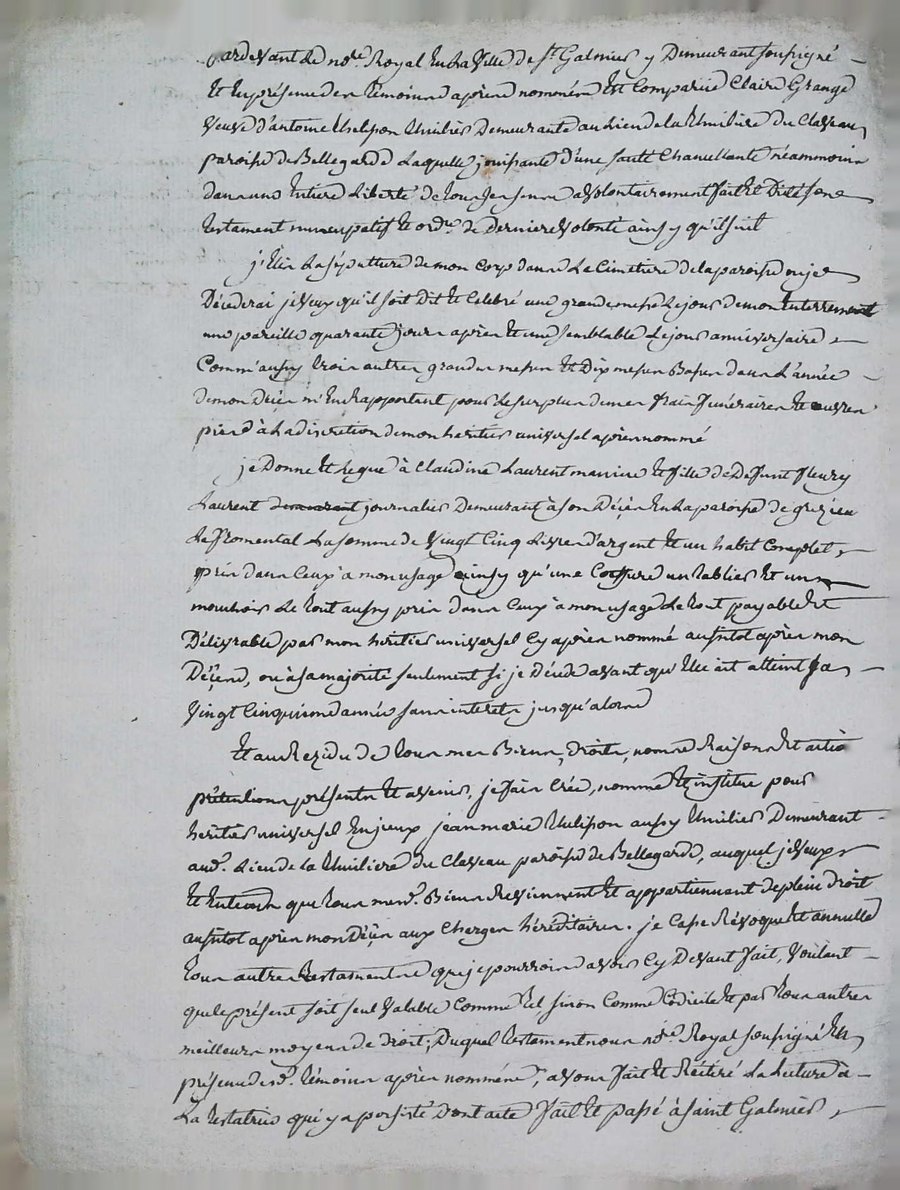 pardevant Le no.re Royal En La Ville de S.t Galmier y Demeurant soussigné
Et En présence des témoins après nommés Est Comparüe Claire Grange
veuve d'antoine thelisson thuilier Demeurante au Lieu de la thuiliere du Clapeau
paroisse de Bellegarde Laquelle jouissante d'une santé Chancellante néammoins
dans une Entiere Liberté de tous ses sens a volontairement fait Et Dicté son
testament nuncupatif Et ord.ce de derniere volonté ainsy qu'il suit
j'Elis La sépulture de mon Corp dans Le Cimetiere de la paroisse ou je
Décéderai je veux qu'il soit Dit Et Célébré une grande messe Le jour de mon Enterrement
une pareille quarante jours après Et une semblable Le jour anniversaire
Comm'aussy trois autres grandes messes Et Dix messes Basses dans L'année
de mon Décès m'En Rapportant pour Le surplus de mes frais funéraires Et œuvres
pies à La discretion de mon heritier universel après nommé
je Donne Et Legue à Claudine Laurent mineure Et fille de Deffunt fleury
Laurent demeurant journalier Demeurant à son Décès En La paroisse de grezieu
Le fromental La somme de Vingt Cinq Livres d'argent Et un habit Complet
pris dans Ceux à mon usage ainsy qu'une Coeffure un tablier Et un
mouchoir Le tout aussy pris dans Ceux à mon usage Le tout payable Et
Délivrable par mon héritier universel Cy après nommé aussitot après mon
Décès, ou à sa majorité seulement si je Décede avant qu'Elle ait atteint sa
vingt Cinquieme année sans interets jusqu'alors
Et au Rezidu de tous mes Biens, Droits, noms Raisons Et actio
prétentions présents Et avenir, je fais Créé, nomme Et institue pour
heritier universel Enjeux jean marie thelisson aussy thuilier Demeurant
aud. Lieu de la thuiliere du Clapeau paroisse de Bellegarde, auquel je veux
Et Entends que tous mesd. Biens Reviennent Et appartiennent de plein droit
aussitot après mon Décès aux Charges héréditaires. je Casse Révoque Et annulle
tous autres testaments que je pourrois avoir Cy Devant fait, Voulant
que le présent soit seul valable Comme tel sinon Comme Codicile Et par tous autres
meilleurs moyens de droit; Duquel testament nous no.re Royal soussigné En
présence desd. témoins après nommés, avons fait Et Réïtéré La Lecture à
La testatrice qui y a persisté Dont acte fait Et passé à saint Galmier